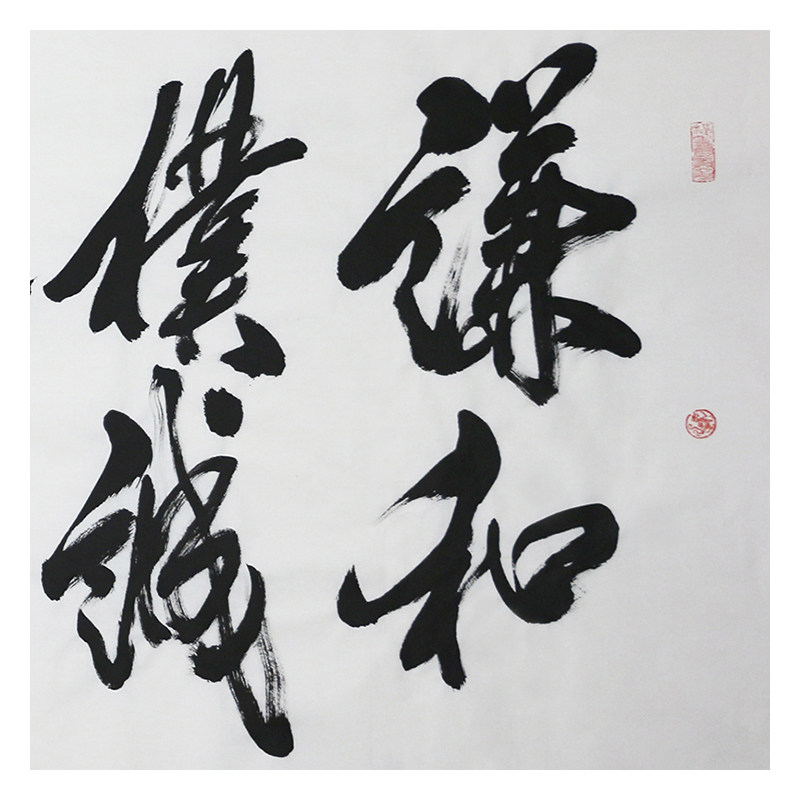 謙和
樸誠